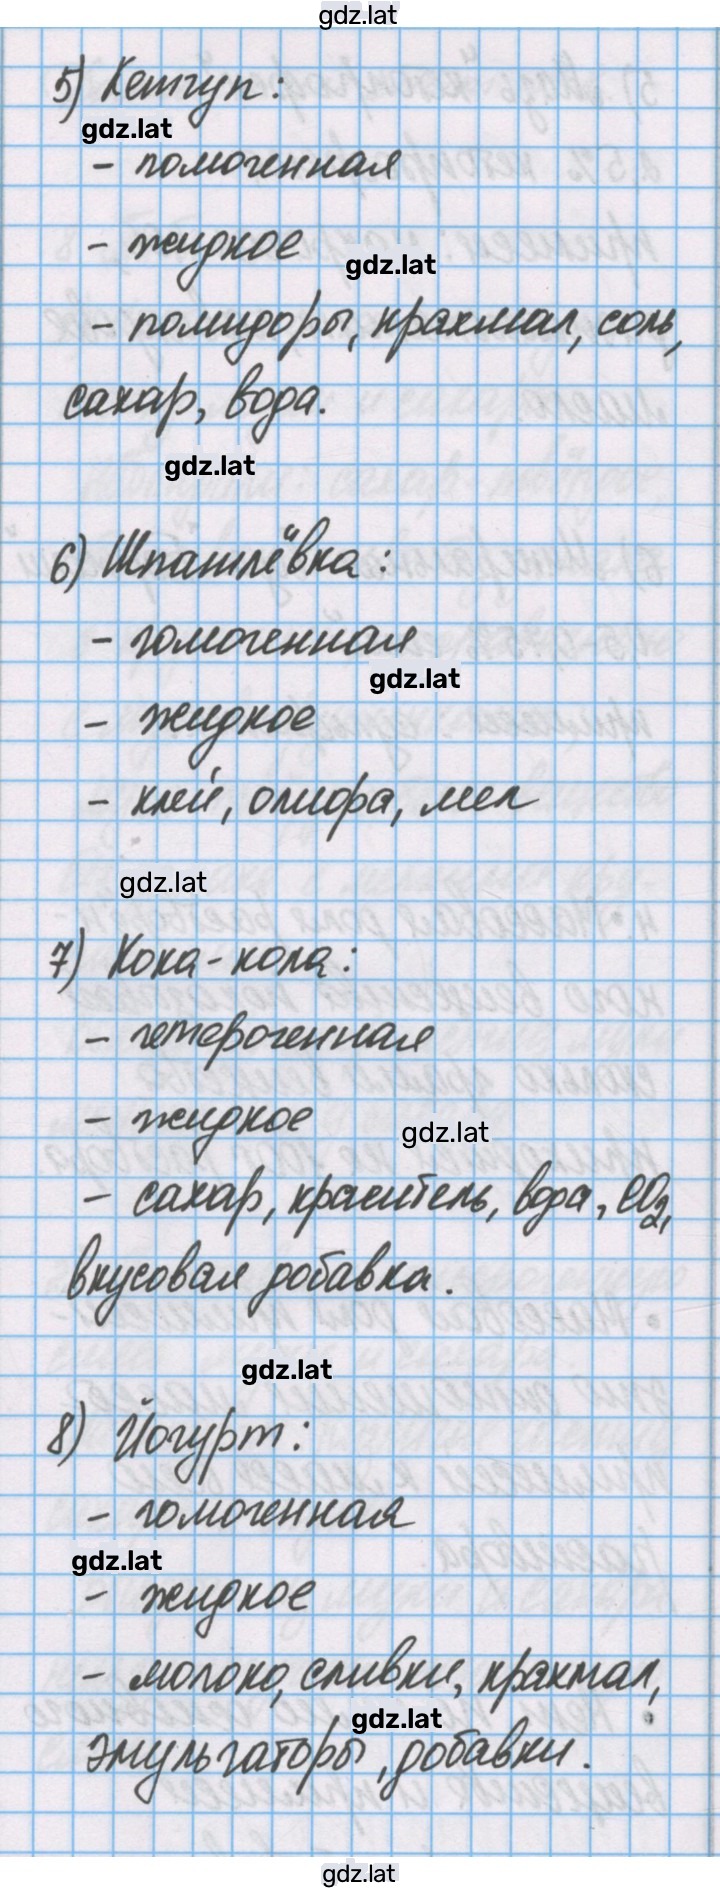 gdz.lat
5) Кетчуп:
gdz.lat
- гомогенная
- жидкое
gdz.lat
- помидоры, крахмал, соль,
сахар, вода.
gdz.lat
6) Шпатлёвка:
- гомогенная
gdz.lat
- жидкое
- клей, олифа, мел
gdz.lat
7) Кока-кола:
- гетерогенная
- жидкое
gdz.lat
- сахар, краситель, вода, CO2,
вкусовая добавка.
gdz.lat
8) Йогурт:
- гомогенная
gdz.lat
- жидкое
- молоко, сливки, крахмал,
gdz.lat
эмульгаторы, добавки.
gdz.lat